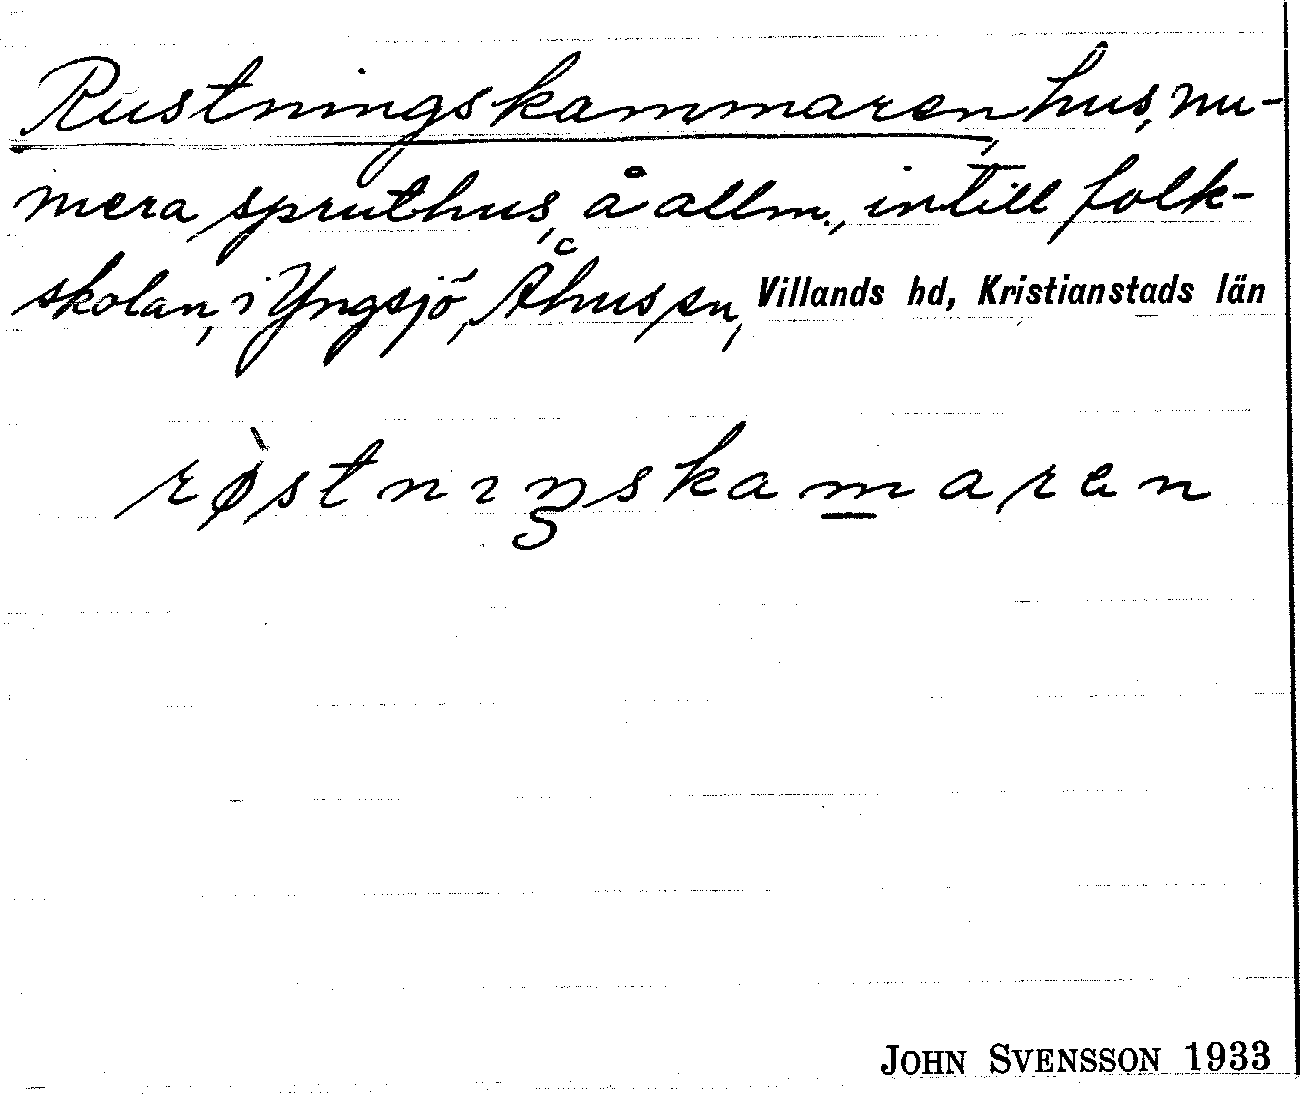 Rustningskammaren, hus, nu-
mera spruthus, å allm., intill folk-
skolan, i Yngsjö, Åhus sn, Villands hd, Kristianstads län
rø̀stnıŋskam̲aren
JOHN SVENSSON 1933